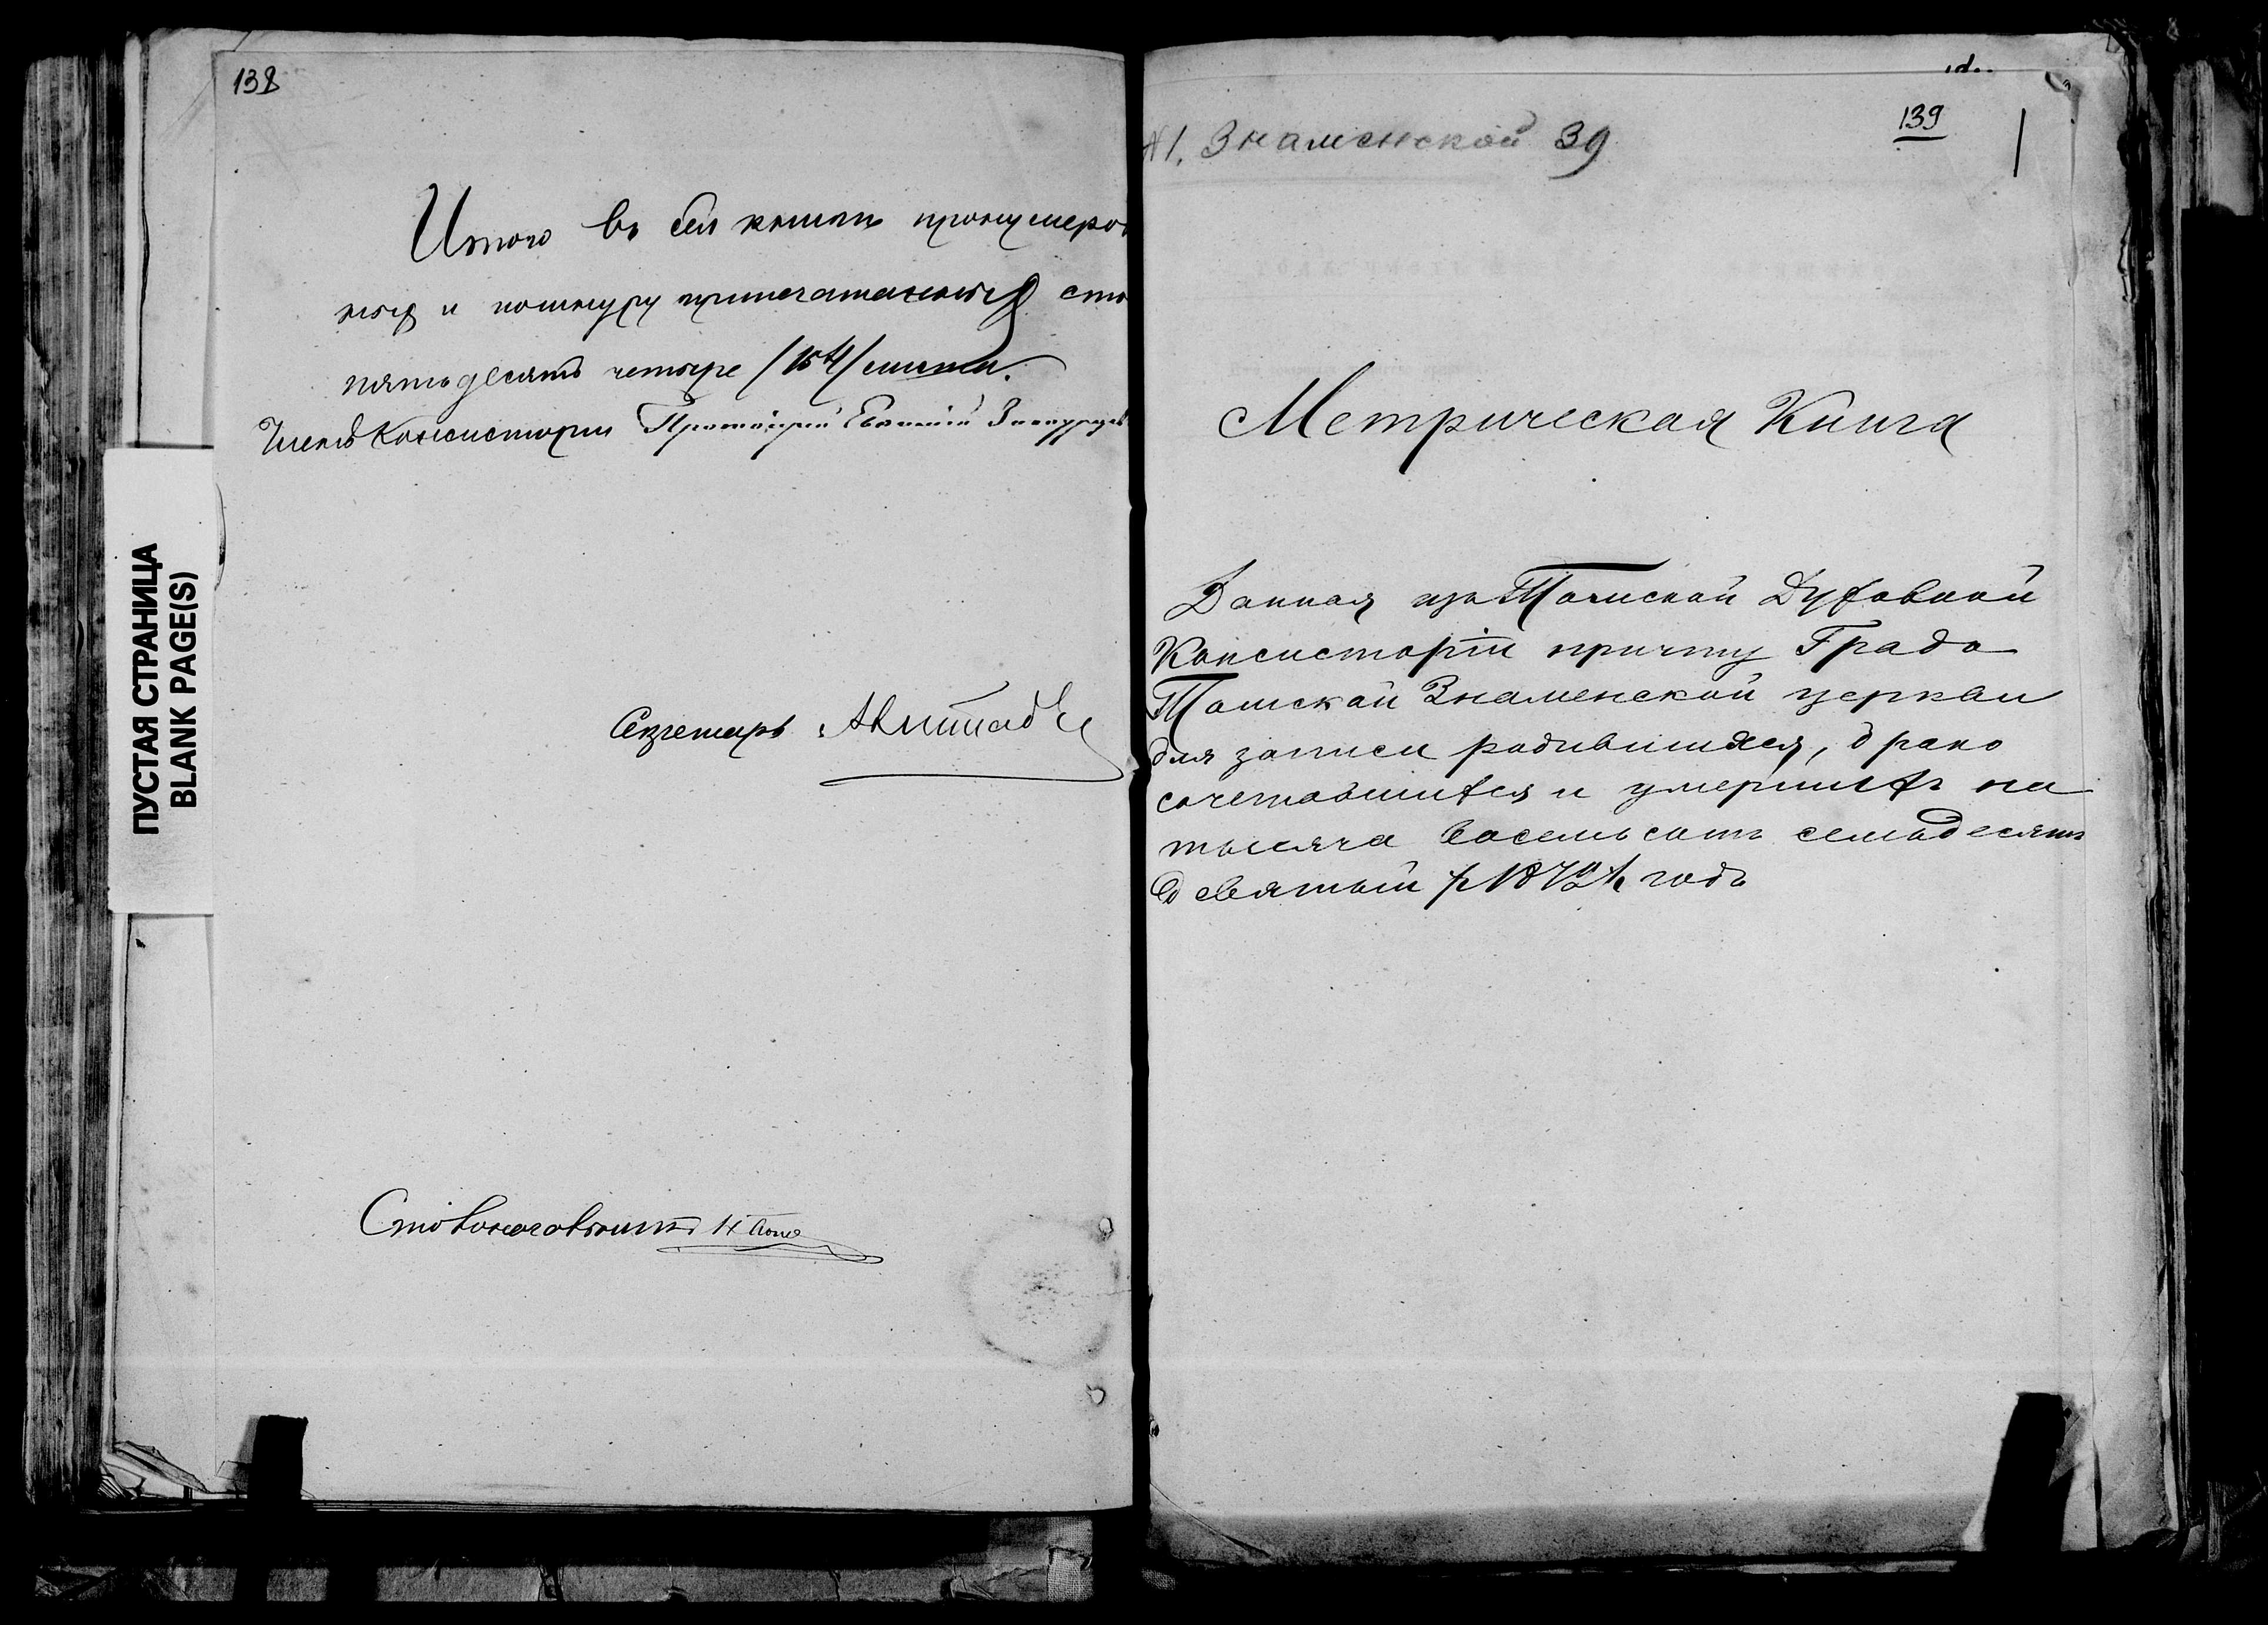 138
Итого въ сей книгѣ пронумеров
ныхъ и по шнуру припечатанныхъ сто
пятьдесятъ четыре /154/ листа.
Членъ Консисторіи Протоіерей Евѳимій
Секретарь
Столоначальникъ
ПУСТАЯ СТРАНИЦА
BLANK PAGE(S)
139
1. Знаменской 39
Метрическая Книга
Данная изъ Томской Духовной
Консисторіи причту Градо
Томской Знаменской церкви
для записи родившихся, брако
сочетавшихся и умершихъ на
тысяча восемьсотъ семьдесятъ
девятый /1879/ годъ